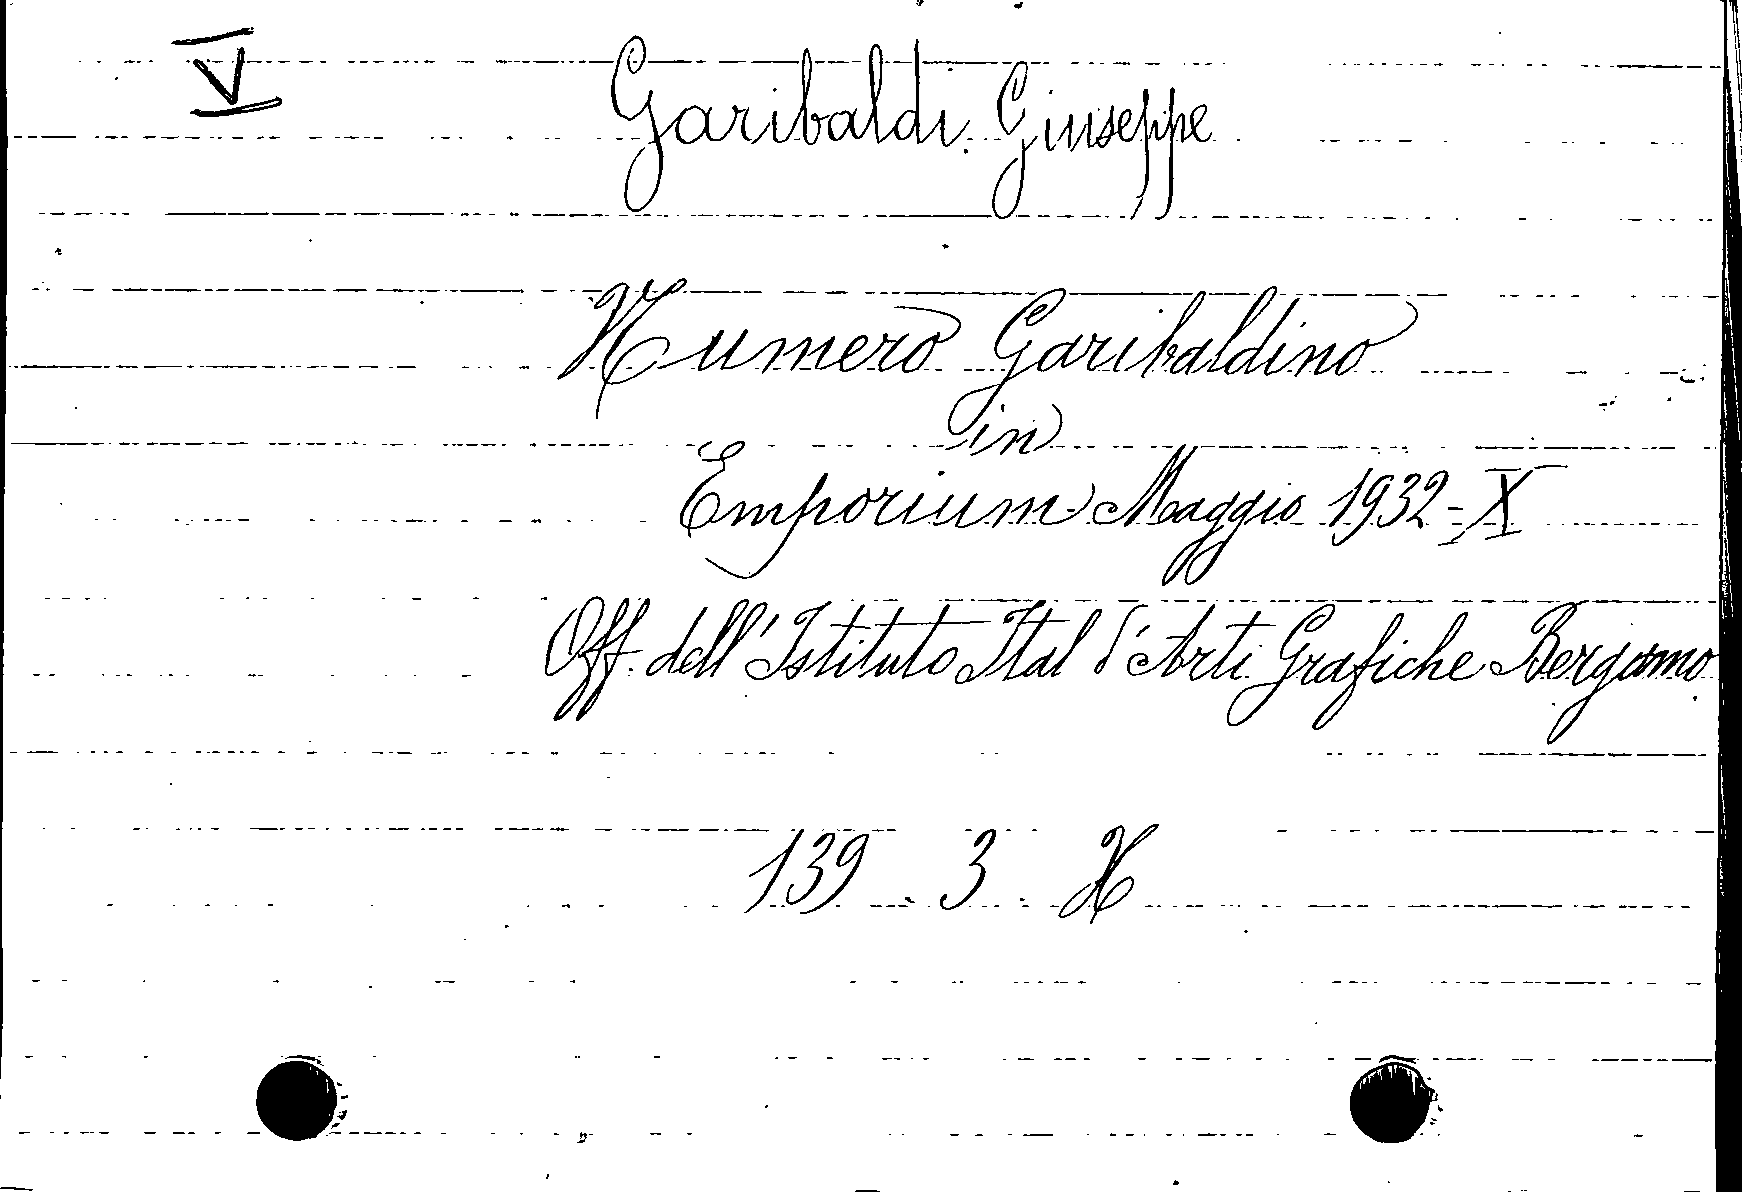 V
Garibaldi Giuseppe
Numero Garibaldino
in
Emporium Maggio 1932-X
Off. dell'Istituto Ital d'Arti Grafiche Bergamo
139 3 H